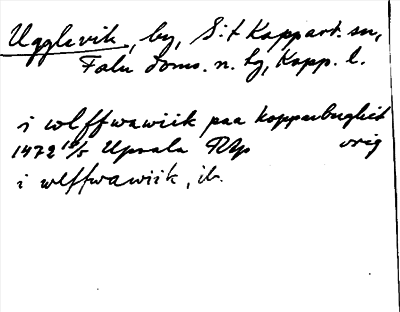 Ugglevik, by, S:t Kopparb. sn,
Falu doms. n. tg, Kopp. l.
i wlffwawiik paa kopparberghit
1472 18/5 Upsala RAp orig
i wlffwawiik, ib.